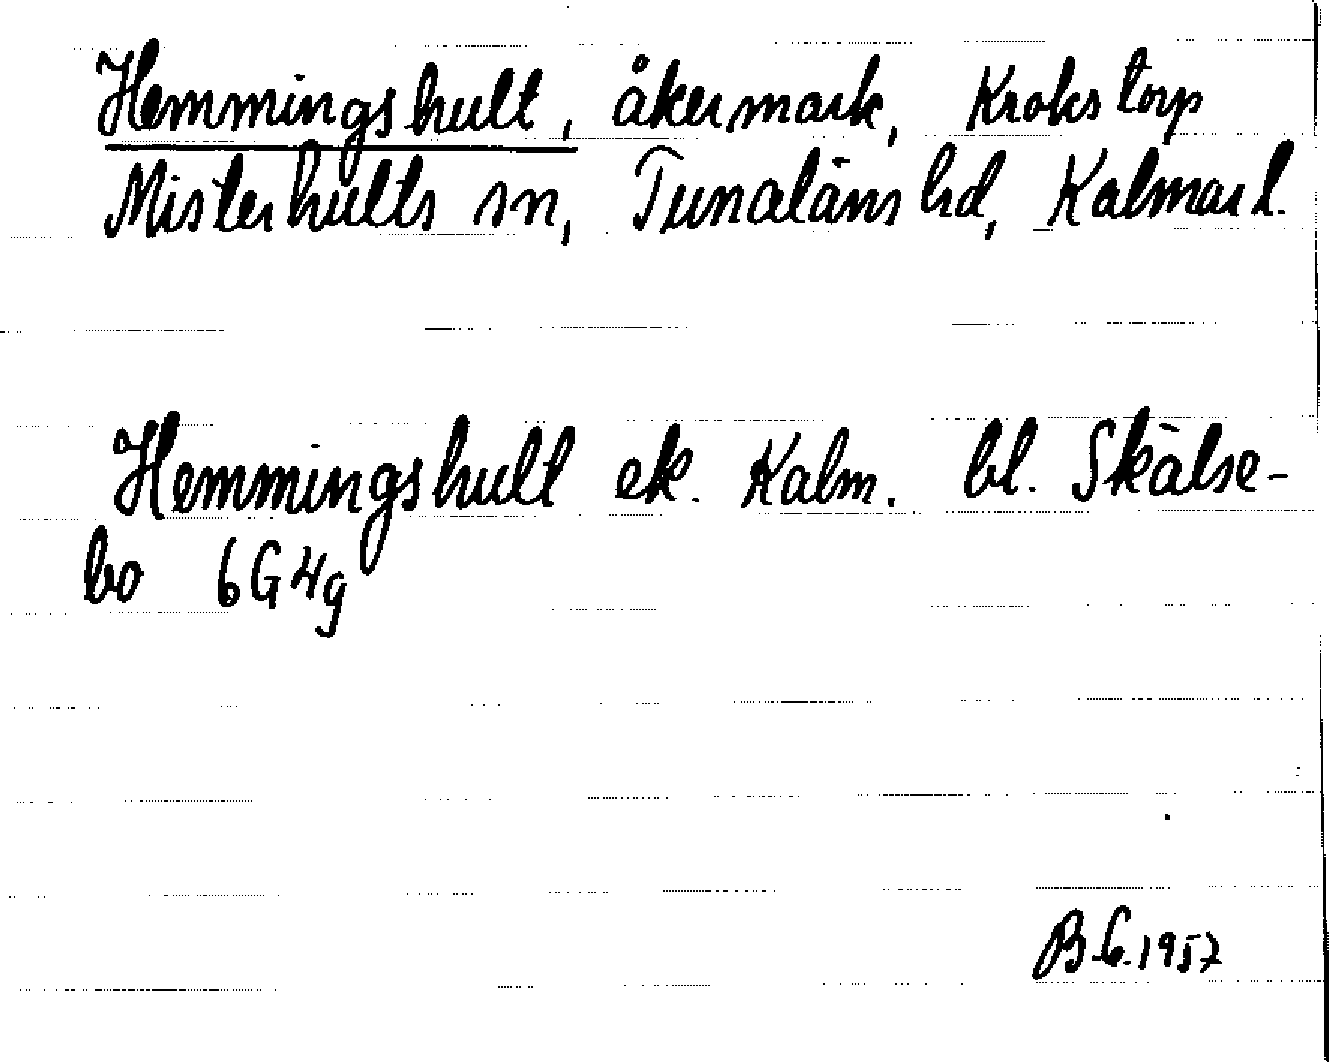 Hemmingshult, åkermark, Krokstorp
Misterhults sn, Tunaläns hd, Kalmar l.
Hemmingshult ek. Kalm. bl. Skälse-
bo 6G4g
B.G. 1957